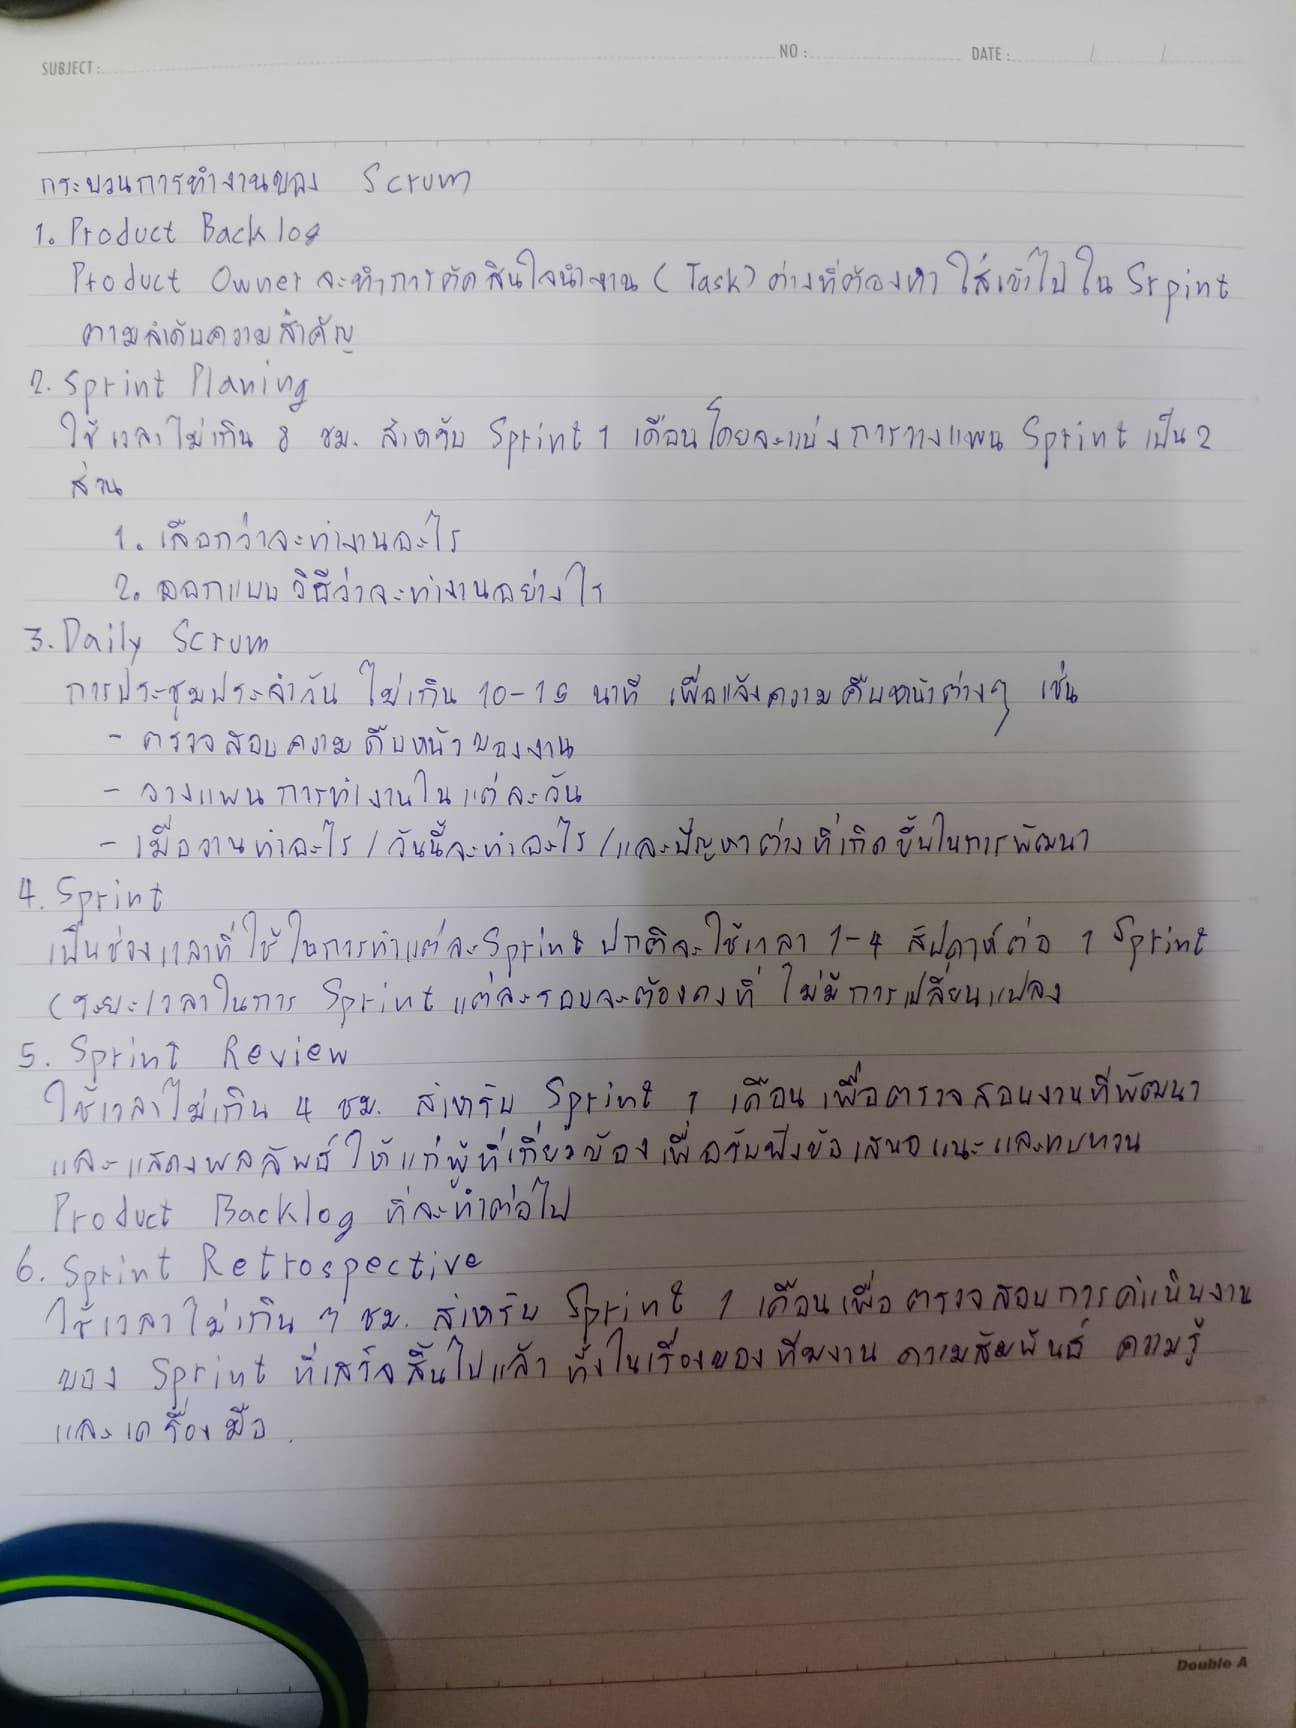 SUBJECT :
NO :
DATE : / /
กระบวนการทำงานของ Scrum
1. Product Backlog
Product Owner จะทำการตัดสินใจนำงาน (Task) ต่างที่ต้องทำ ใส่เข้าไปใน Srpint
ตามลำดับความสำคัญ
2. Sprint Planing
ใช้เวลาไม่เกิน 8 ชม. สำหรับ Sprint 1 เดือนโดยจะแบ่งการวางแผน Sprint เป็น 2
ส่วน
1. เลือกว่าจะทำงานอะไร
2. ออกแบบวิธีว่าจะทำงานอย่างไร
3. Daily Scrum
การประชุมประจำวัน ไม่เกิน 10-15 นาที เพื่อแจ้งความคืบหน้าต่างๆ เช่น
- ตรวจสอบความคืบหน้าของงาน
- วางแผนการทำงานในแต่ละวัน
- เมื่อวานทำอะไร / วันนี้จะทำอะไร / และปัญหาต่างที่เกิดขึ้นในการพัฒนา
4. Sprint
เป็นช่วงเวลาที่ใช้ในการทำแต่ละ Sprint ปกติจะใช้เวลา 1-4 สัปดาห์ต่อ 1 Sprint
(ระยะเวลาในการ Sprint แต่ละรอบจะต้องคงที่ ไม่มีการเปลี่ยนแปลง
5. Sprint Review
ใช้เวลาไม่เกิน 4 ชม. สำหรับ Sprint 1 เดือน เพื่อตรวจสอบงานที่พัฒนา
และแสดงผลลัพธ์ให้แก่ผู้ที่เกี่ยวข้องเพื่อรับฟังข้อเสนอแนะและทบทวน
Product Backlog ที่จะทำต่อไป
6. Sprint Retrospective
ใช้เวลาไม่เกิน ชม. สำหรับ Sprint 1 เดือนเพื่อตรวจสอบการดำเนินงาน
ของ Sprint ที่เสร็จสิ้นไปแล้ว ทั้งในเรื่องของทีมงาน ความสัมพันธ์ ความรู้
และเครื่องมือ.
Double A